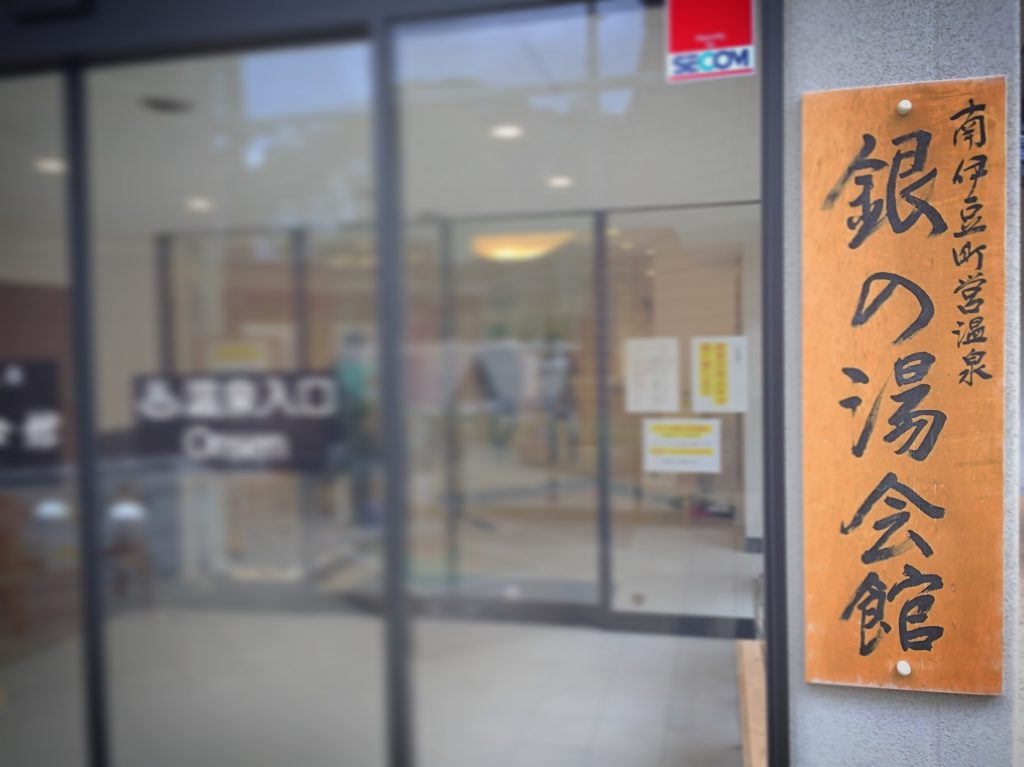 南伊豆町営温泉
銀の湯会館
SECOM
温泉入口
Onsen